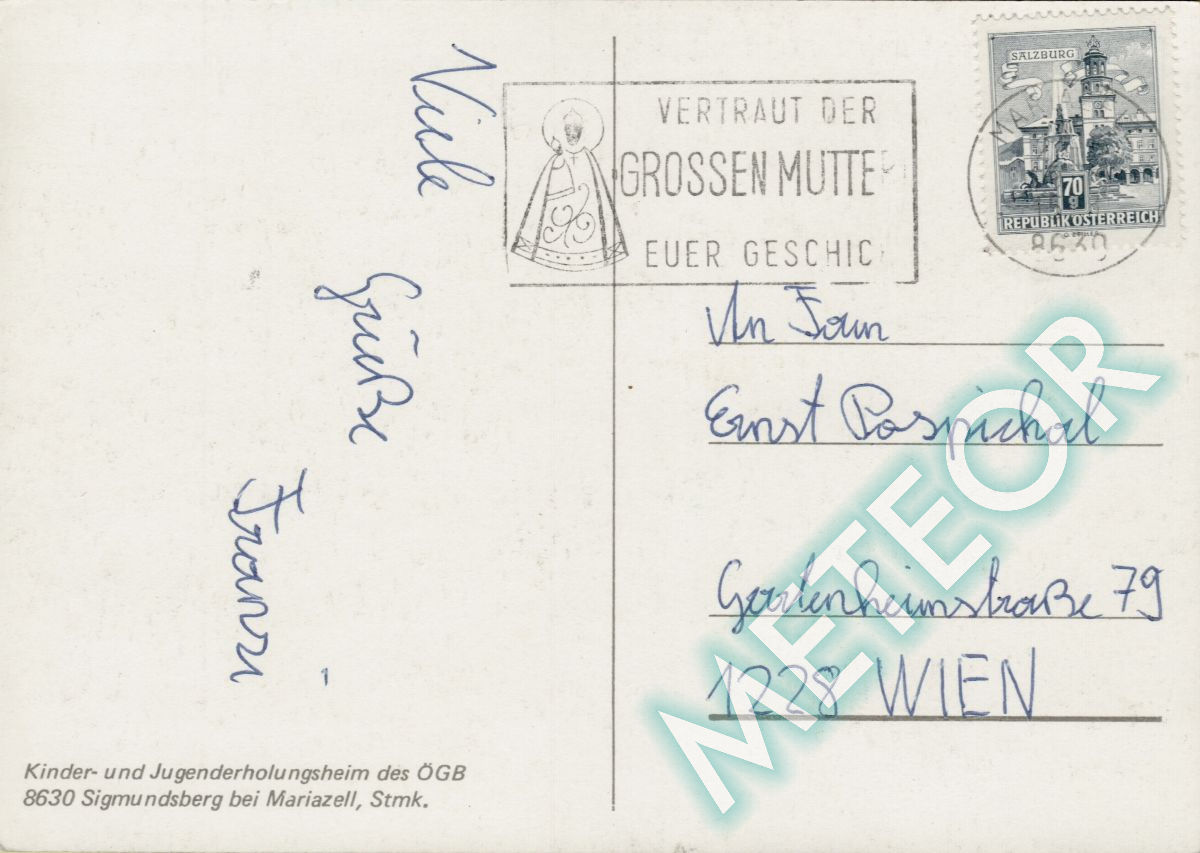 Viele
Grüße
Franzi
Kinder- und Jugenderholungsheim des ÖGB
8630 Sigmundsberg bei Mariazell, Stmk.
VERTRAUT DER
GROSSEN MUTTE
EUER GESCHIC
SALZBURG
70
g
REPUBLIK ÖSTERREICH
8630
An Fam
Ernst Pospichal
Gartenheimstraße 79
1228 WIEN
METEOR